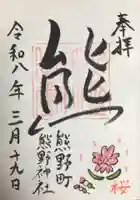 奉拝
熊
熊野町
熊野神社
令和八年 三月十九日
桜